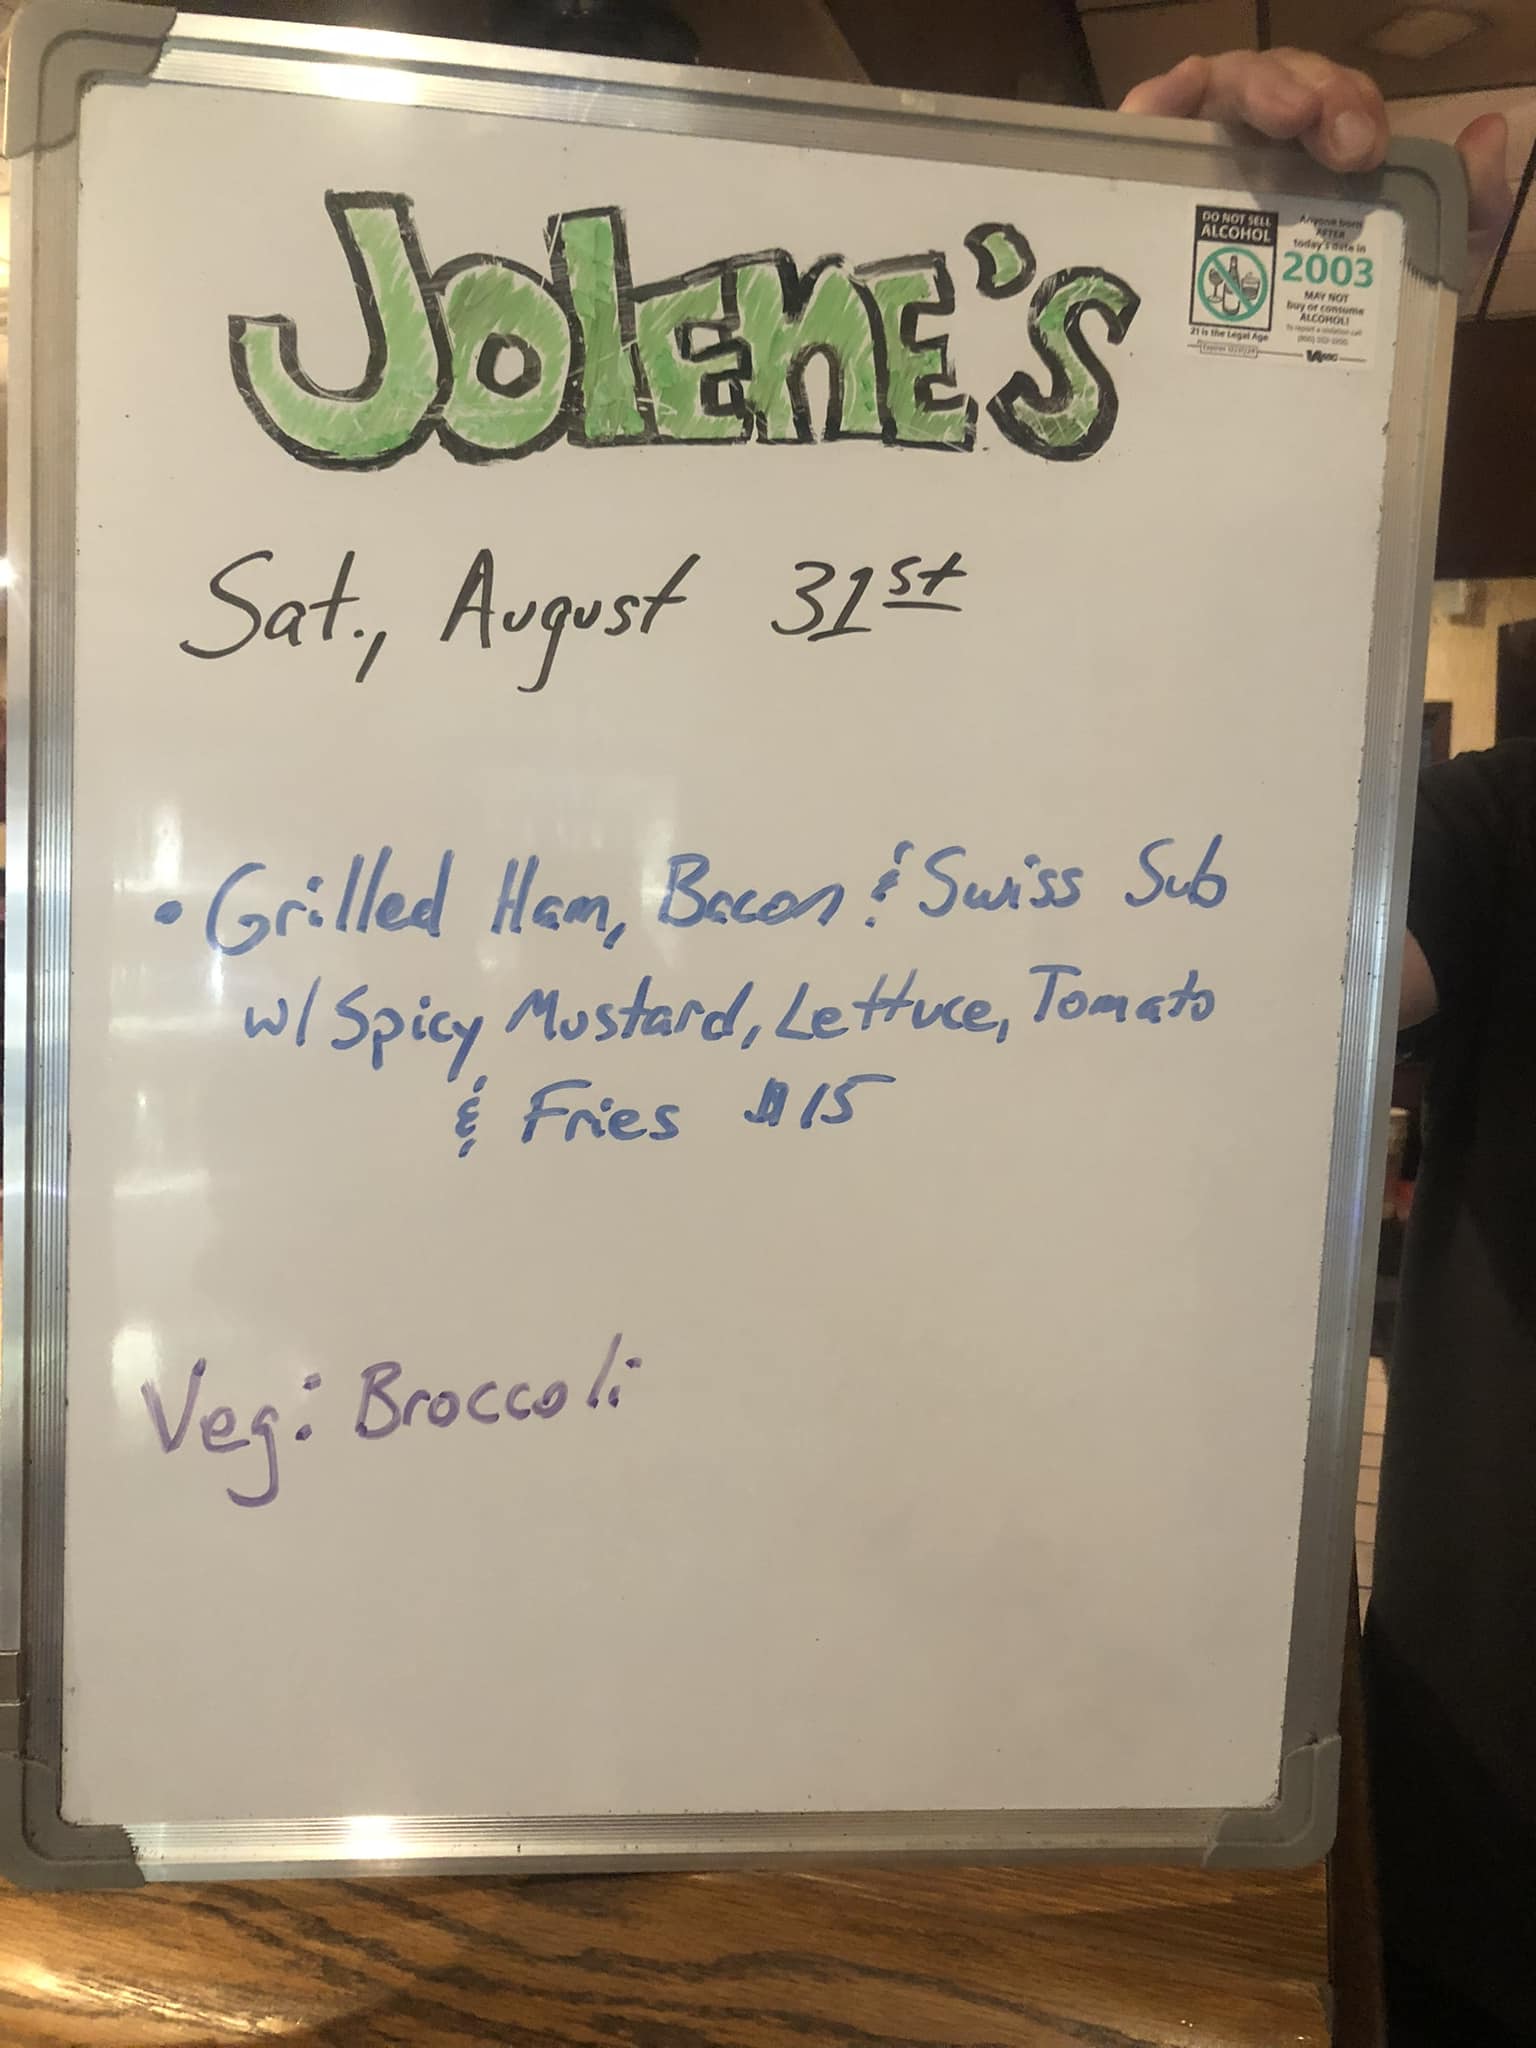 JOLENE'S
DO NOT SELL
ALCOHOL
21 is the Legal Age
Anyone born
AFTER
today's date in
2003
MAY NOT
buy or consume
ALCOHOL!
Sat., August 31st
• Grilled Ham, Bacon & Swiss Sub
w/ Spicy Mustard, Lettuce, Tomato
& Fries $15
Veg: Broccoli